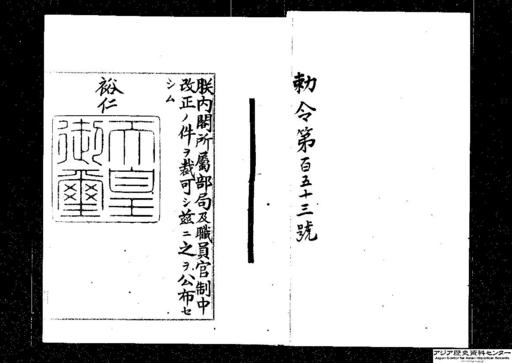 勅令第百五十三號
朕内閣所屬部局及職員官制中
改正ノ件ヲ裁可シ茲ニ之ヲ公布セ
シム
裕仁
天皇
御璽
アジア歴史資料センター
Japan Center for Asian Historical Records